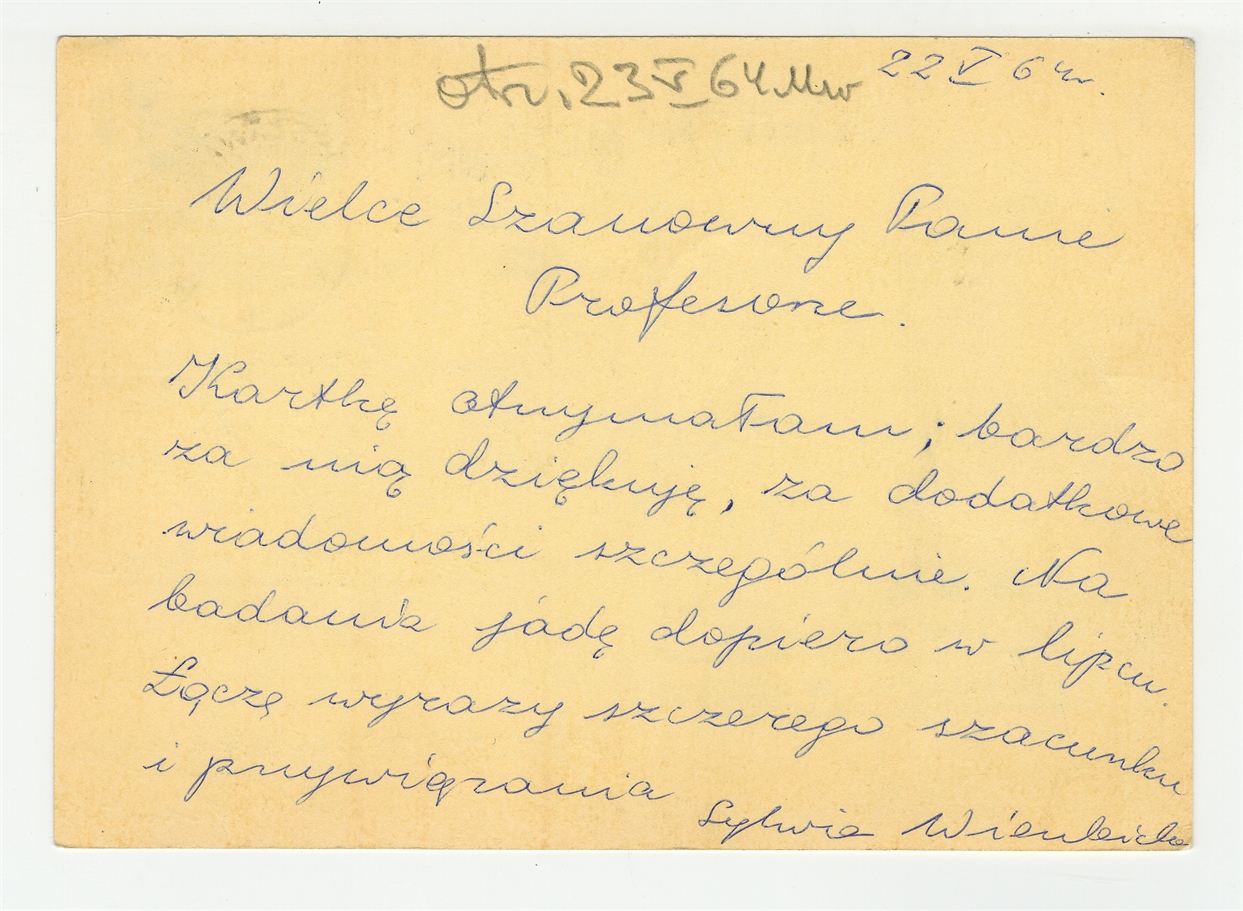 otrz. 23 V 64 MW 22 V 64 r.
Wielce Szanowny Panie
Profesorze.
Kartkę otrzymałam; bardzo
za nią dziękuję, za dodatkowe
wiadomości szczególnie. Na
badania jadę dopiero w lipcu.
Łączę wyrazy szczerego szacunku
i przywiązania
Sylwia